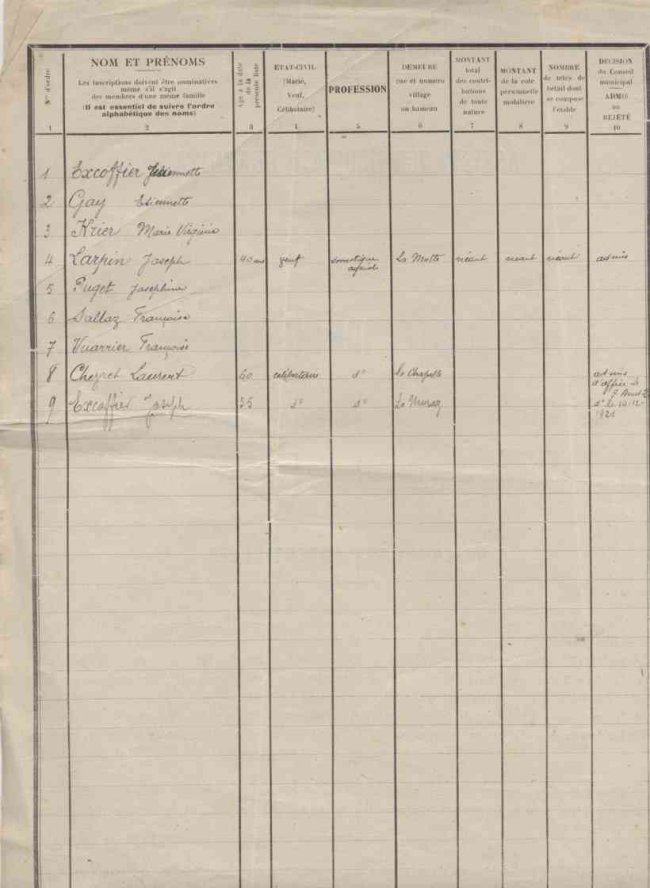 Nos d'ordre
NOM ET PRÉNOMS
Les inscriptions doivent être nominatives
même s'il s'agit
des membres d'une même famille
(Il est essentiel de suivre l'ordre
alphabétique des noms)
Age à la date
de la
présente liste
ETAT-CIVIL
(Marié,
Veuf,
Célibataire)
PROFESSION
DEMEURE
rue et numéro
village
ou hameau
MONTANT
total
des contri-
butions
de toute
nature
MONTANT
de la cote
personnelle
mobilière
NOMBRE
de têtes de
bétail dont
se compose
l'étable
DÉCISION
du Conseil
municipal
ADMIS
ou
REJETÉ
1 2 3 4 5 6 7 8 9 10
1 Excoffier
2 Gay Etiennette
3 Krier Marie Virginie
4 Larpin Joseph 40 ans veuf domestique agricole La Motte néant néant néant admis
5 Puget Joséphine
6 Sallaz Françoise
7 Vuarrier Françoise
8 Cheyret Laurent 60 célibataire do La Chapelle admis
d'office le
7 Aout
9 Excoffier Joseph 35 do do Le Muraz do le 10-12-
1921